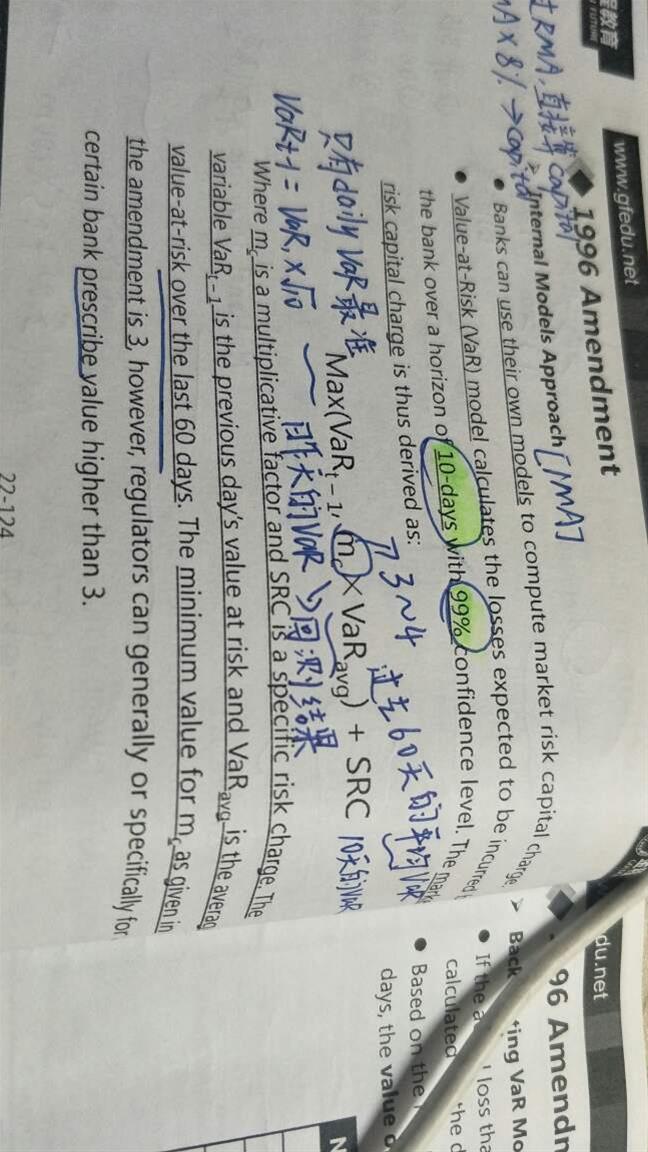 程教育
www.gfedu.net
过RMA,直接算capital
MA×8%→capital
1996 Amendment
Internal Models Approach [IMA]
Banks can use their own models to compute market risk capital charge
Value-at-Risk (VaR) model calculates the losses expected to be incurred
the bank over a horizon of 10-days with 99% confidence level. The
risk capital charge is thus derived as:
7 3~4 过去60天的平均VaR
只有daily VaR最准
Max(VaRt − 1, mc × VaRavg) + SRC
10天的VaR
VaRt-1 = VaR1×√10
昨天的VaR
回测结果
Where mc is a multiplicative factor and SRC is a specific risk charge. The
variable VaRt−1 is the previous day's value at risk and VaRavg is the averag
value-at-risk over the last 60 days. The minimum value for mc as given in
the amendment is 3, however, regulators can generally or specifically for
certain bank prescribe value higher than 3.
22-124
du.net
96 Amendm
Back ting VaR Mo
If the a loss tha
calculated the d
Based on the
days, the value o
N